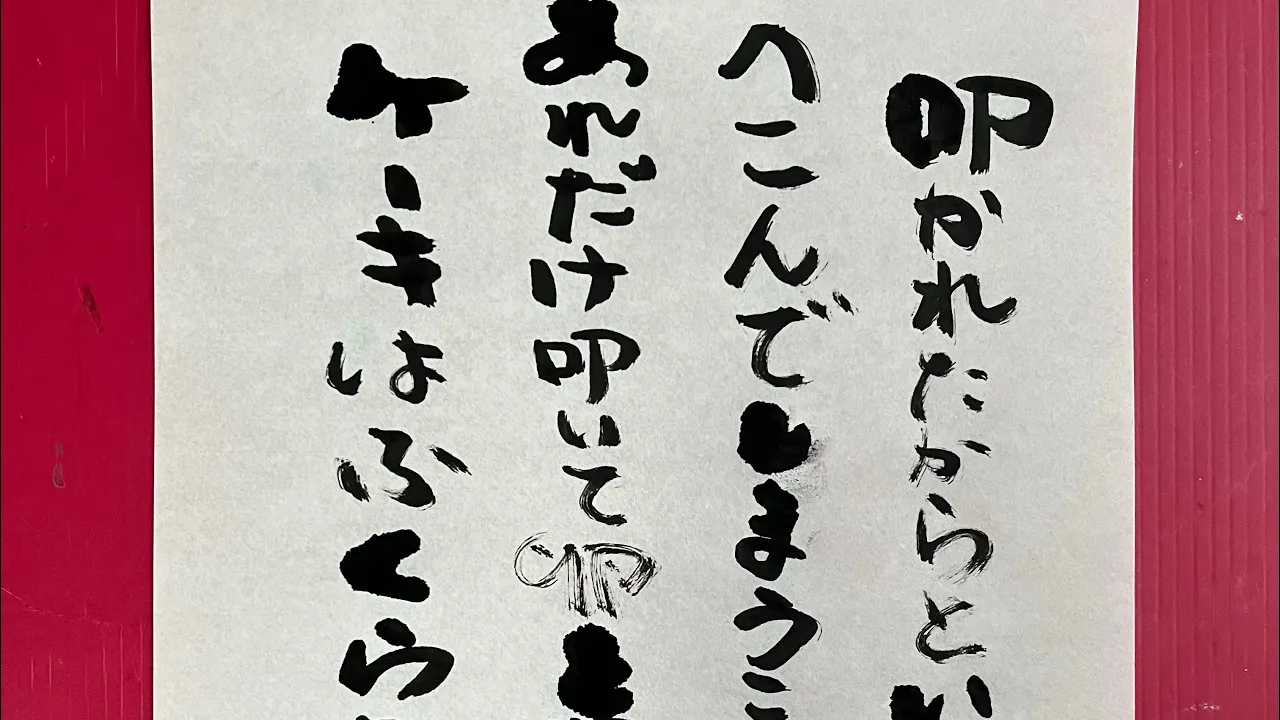 叩かれたからとい
へこんでしまうこ
あれだけ叩いて叩
ケーキはふくら